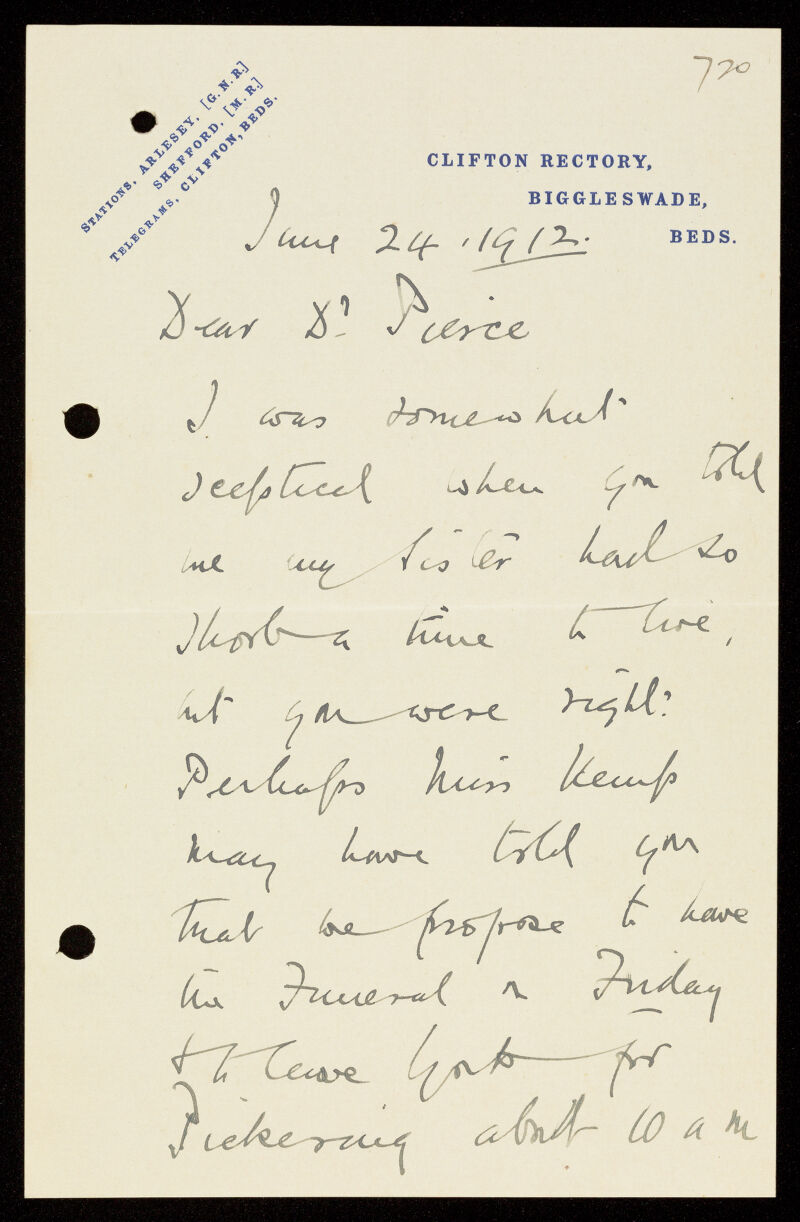 720
STATIONS, ARLESEY, [G.N.R.]
SHEFFORD. [M.R.]
TELEGRAMS, CLIFTON, BEDS.
CLIFTON RECTORY,
BIGGLESWADE,
BEDS.
June 24. 1912.
Dear Dr Pierce
I was somewhat
sceptical when you told
me my sister had so
short a time to live,
but you were right.
Perhaps Miss Kemp
may have told you
that we propose to have
the Funeral on Friday
& to leave York for
Pickering about 10 a m